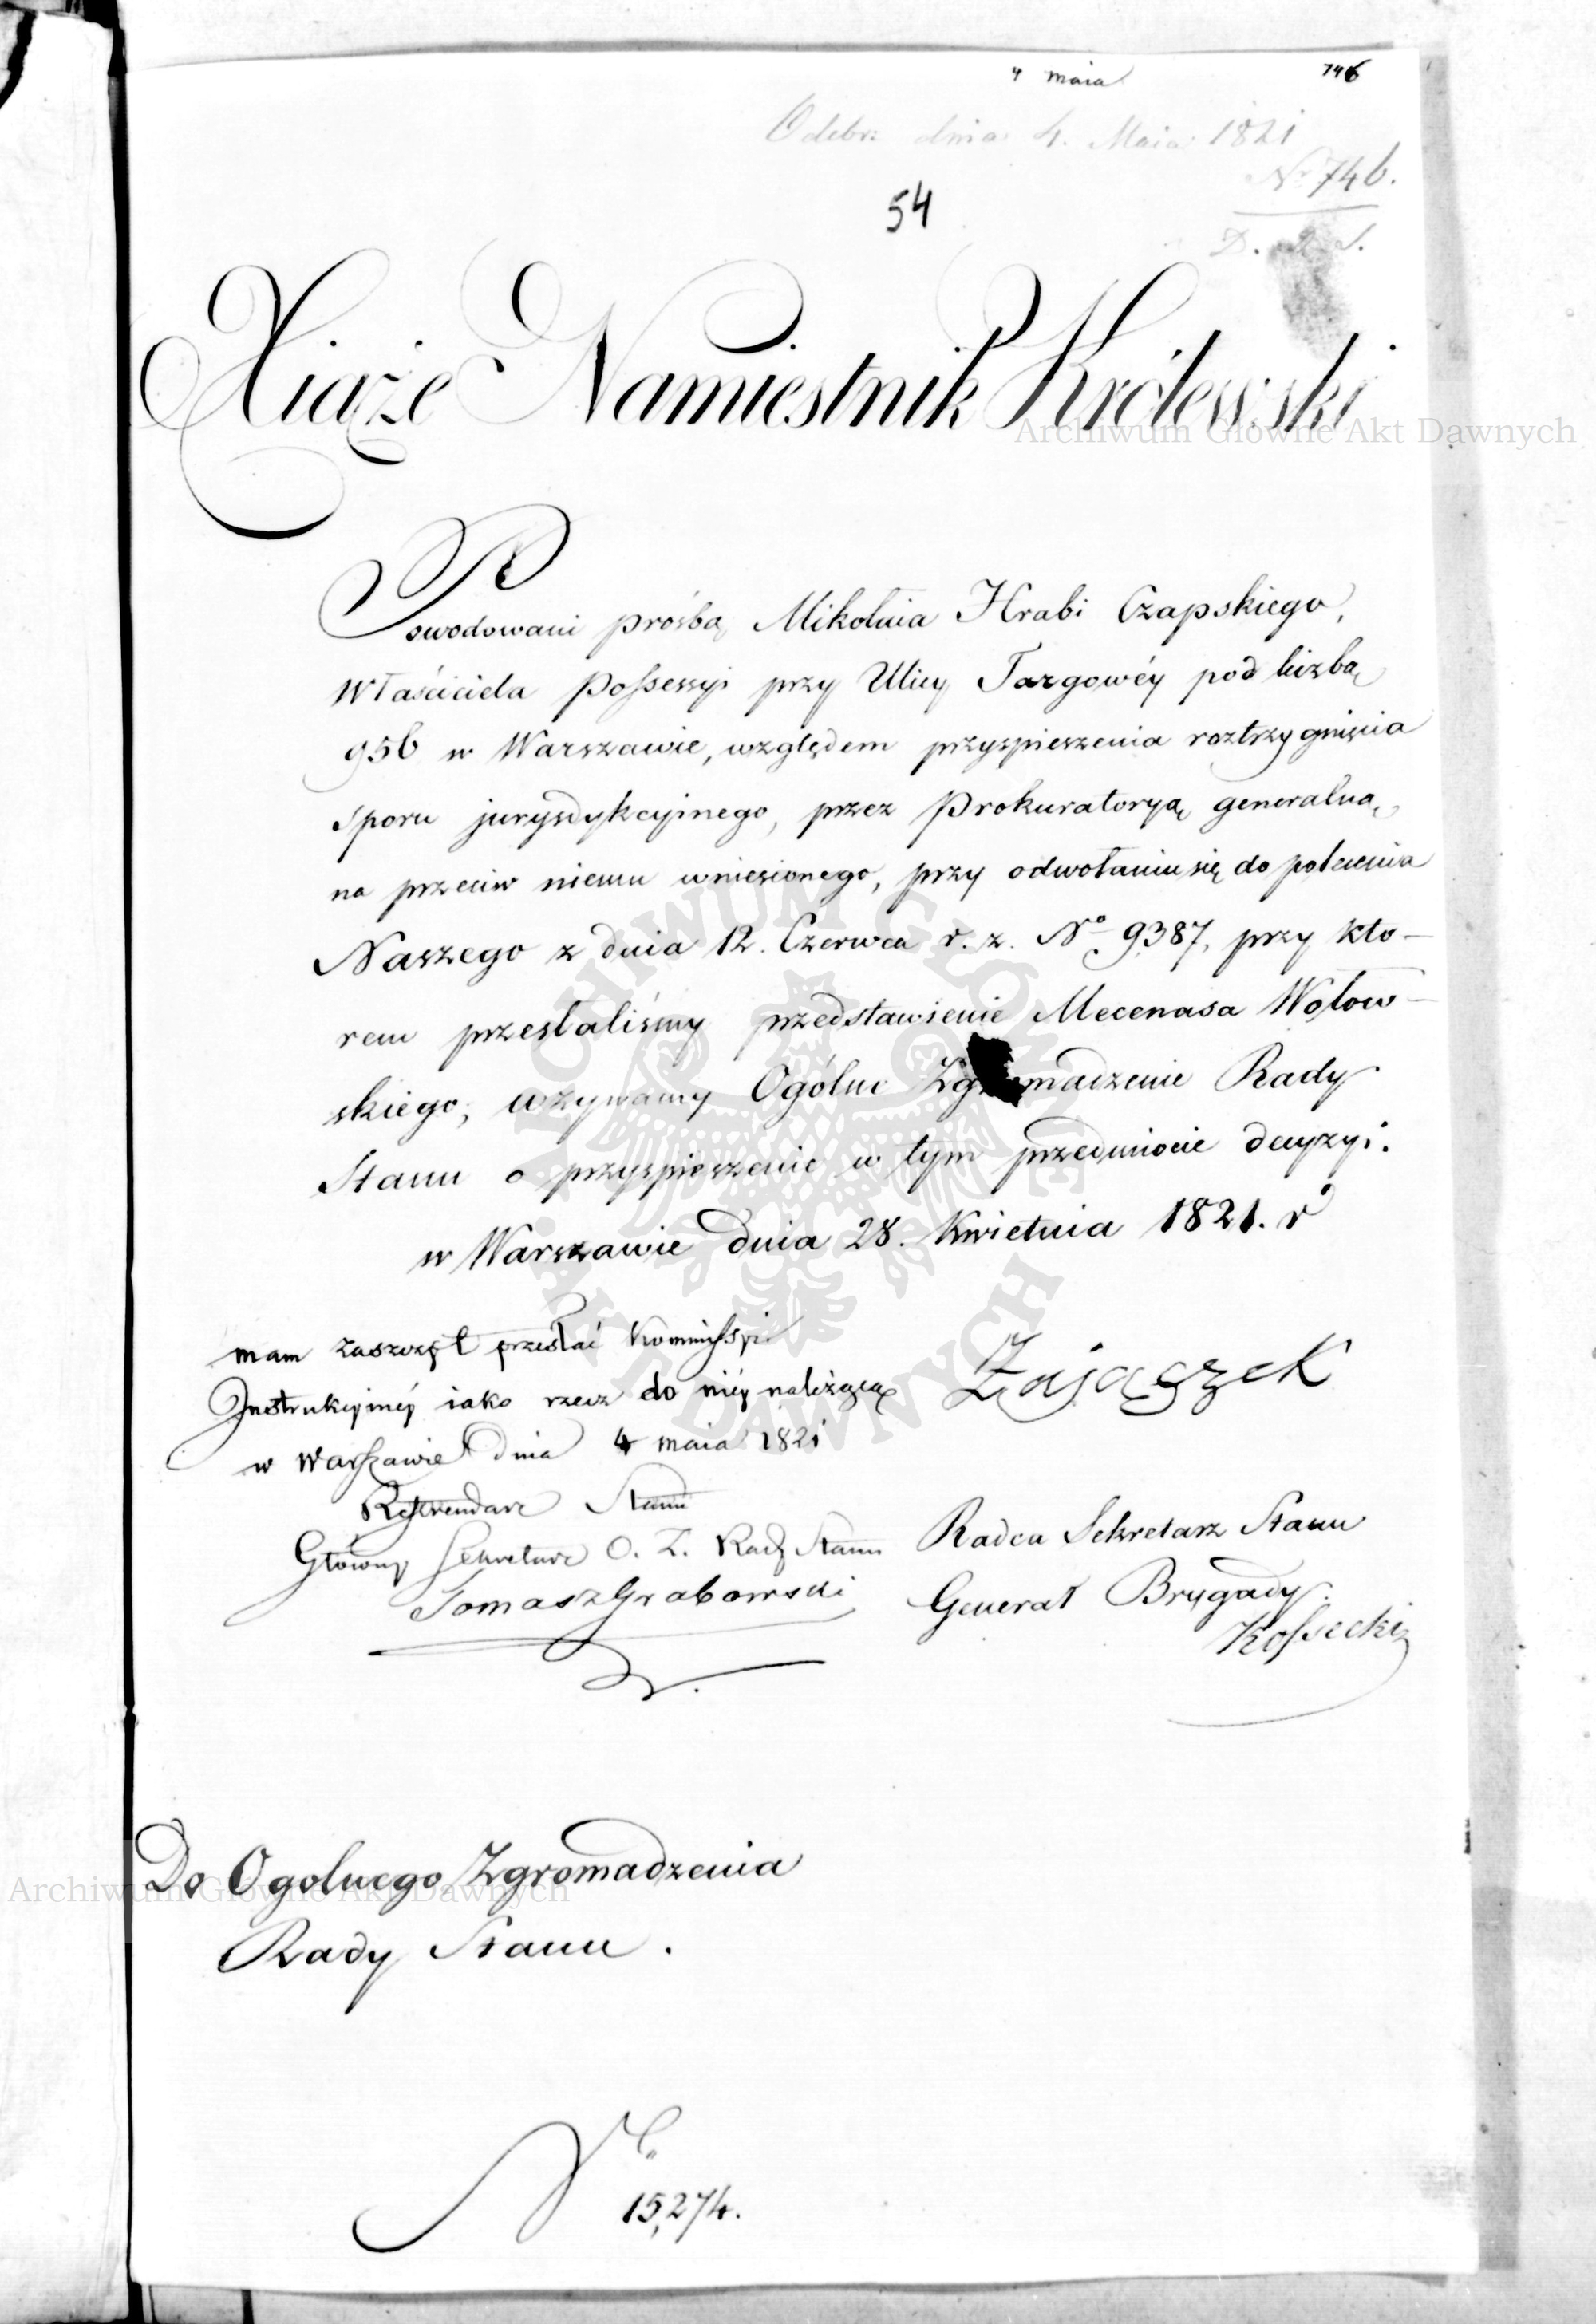 4 maia 746
Odebr: dnia 4. Maia 1821
№ 746.
54
Xiąże Namiestnik Królewski
Powodowani prośbą Mikołaia Hrabi Czapskiego,
Właściciela Possessyi przy Ulicy Targowéy pod liczbą
956 w Warszawie, względem przyspieszenia roztrzygnięcia
sporu jurysdykcyinego, przez Prokuratoryą generalną,
na przeciw niemu wniesionego, przy odwołaniu się do polecenia
Naszego z dnia 12. Czerwca r. z. No 9387, przy któ-
rem przesłaliśmy przedstawienie Mecenasa Wołow-
skiego, wzywamy Ogólne Zgromadzenie Rady
Stanu o przyspieszenie w tym przedmiocie decyzyi.
w Warszawie dnia 28. Kwietnia 1821. r
mam zaszczyt przesłać Kommissyi
Instrukcyinéy iako rzecz do niéy należącą
w Warszawie dnia 4 maia 1821
Zajączek
Referendarz Stanu
Główny Sekretarz O. Z. Rady Stanu
Tomasz Grabowski
Radca Sekretarz Stanu
Generał Brygady
Kossecki
Do Ogolnego Zgromadzenia
Rady Stanu.
No
15,274.
Archiwum Główne Akt Dawnych
Archiwum Główne Akt Dawnych
ARCHIWUM GŁÓWNE AKT DAWNYCH